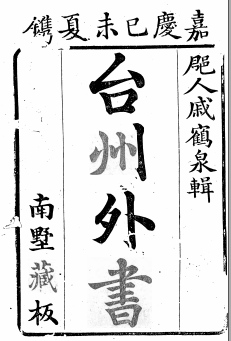 嘉慶己未夏鐫
郞人戚鶴泉輯
台州外書
南墅藏板